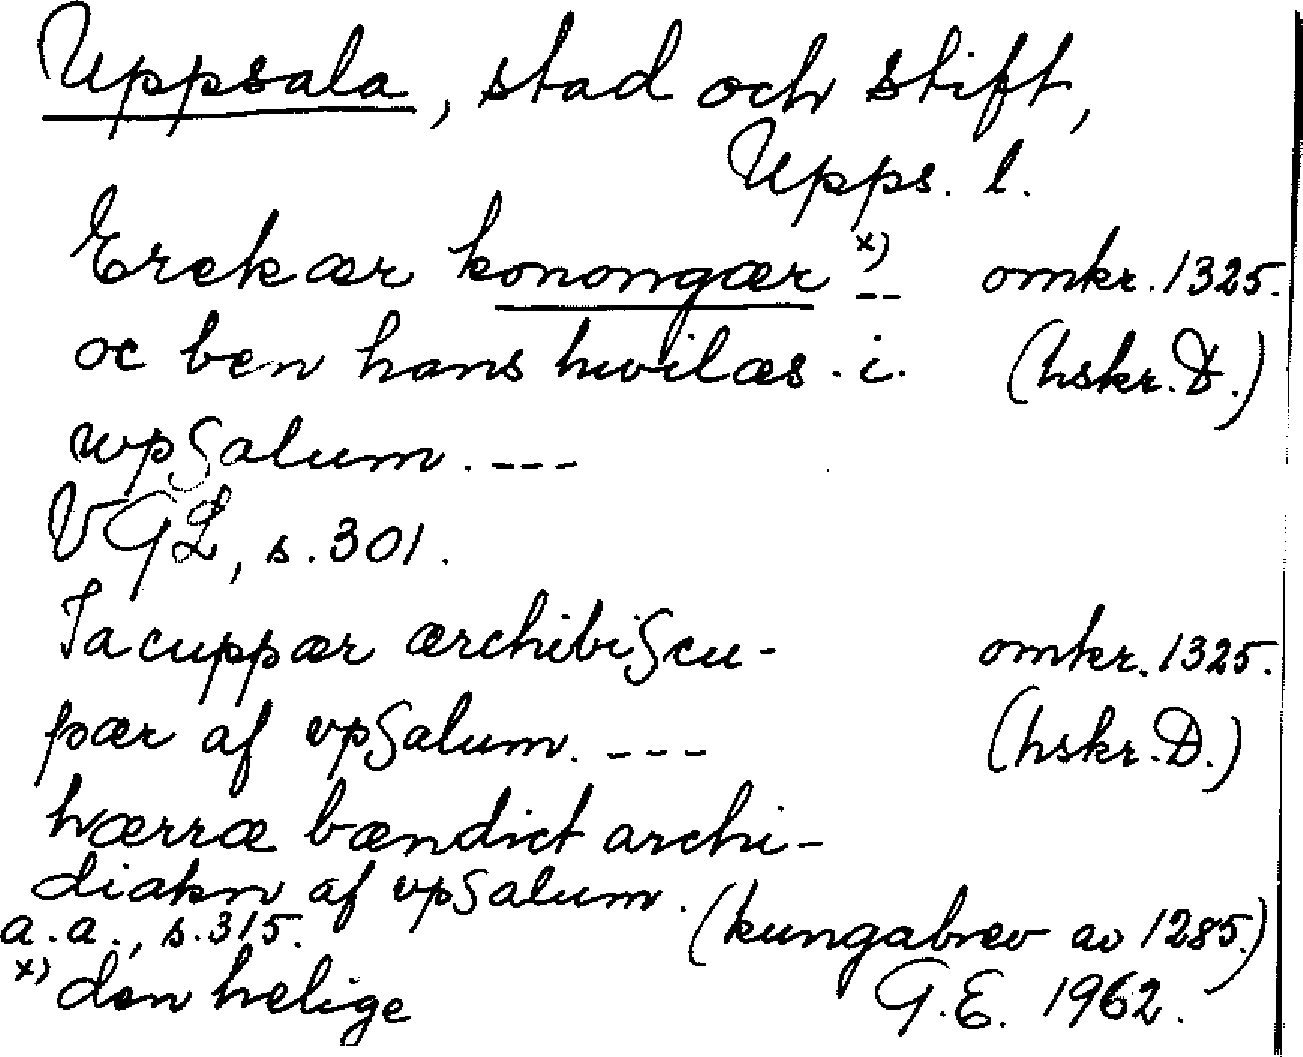 Uppsala, stad och stift,
Upps. l.
Erekær konongær x) -- omkr. 1325.
oc ben hans hwilæs . i. (hskr. D.)
wpſalum. ---
VGL, s. 301.
Iacuppær ærchibiſcu- omkr. 1325.
pær af vpſalum. --- (hskr. D.)
hærræ bændict archi-
diakn af vpſalum.
a.a., s. 315. (kungabrev av 1285.)
x) den helige G.E. 1962.